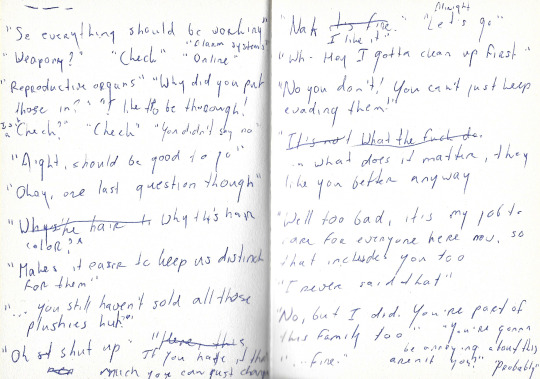 "So everything should be working"
"Weapons?" "Check" "Alarm systems"
"Online"
"Reproductive organs" "Why did you put
those in?" "I like to be thorough!
Check?" "Check" "You didn't say no"
"Aight, should be good to go"
"Okay, one last question though"
"Why the hair Why this hair
color?"
"Makes it easier to keep us distinct
for them"
"... you still haven't sold all those
plushies huh?"
"Oh shut up
If you hate it that
much you can just change
"Nah it's fine." "Alright
I like it" Let's go"
"Wh- Hey I gotta clean up first"
"No you don't! You can't just keep
evading them!"
"It's not What the fuck do
in what does it matter, they
like you better anyway
"Well too bad, it's my job to
care for everyone here now, so
that includes you too
"I never said that"
"No, but I did. You're part of
this family too" "You're gonna
be annoying about this
"...Fine." aren't you?" "Probably"